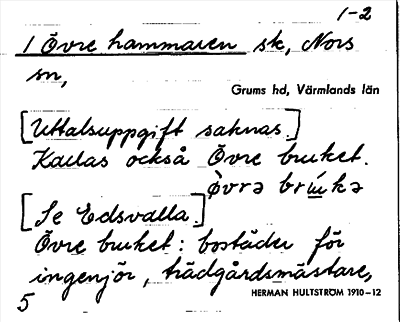 1-2
1 Övre hammaren sk, Nors
sn,
Grums hd, Värmlands län
[Uttalsuppgift saknas.]
Kallas också Övre bruket.
[Se Edsvalla.]
Övre bruket: bostäder för
ingenjör, trädgårdsmästare,
HERMAN HULTSTRÖM 1910-12
5